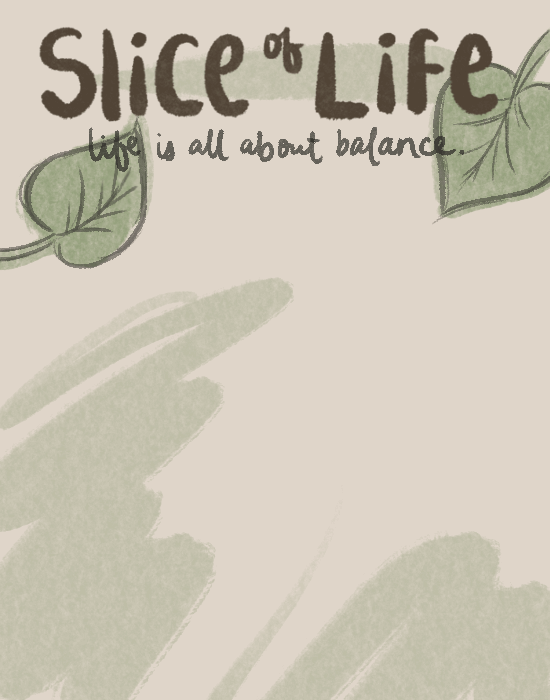 Slice of Life
life is all about balance.